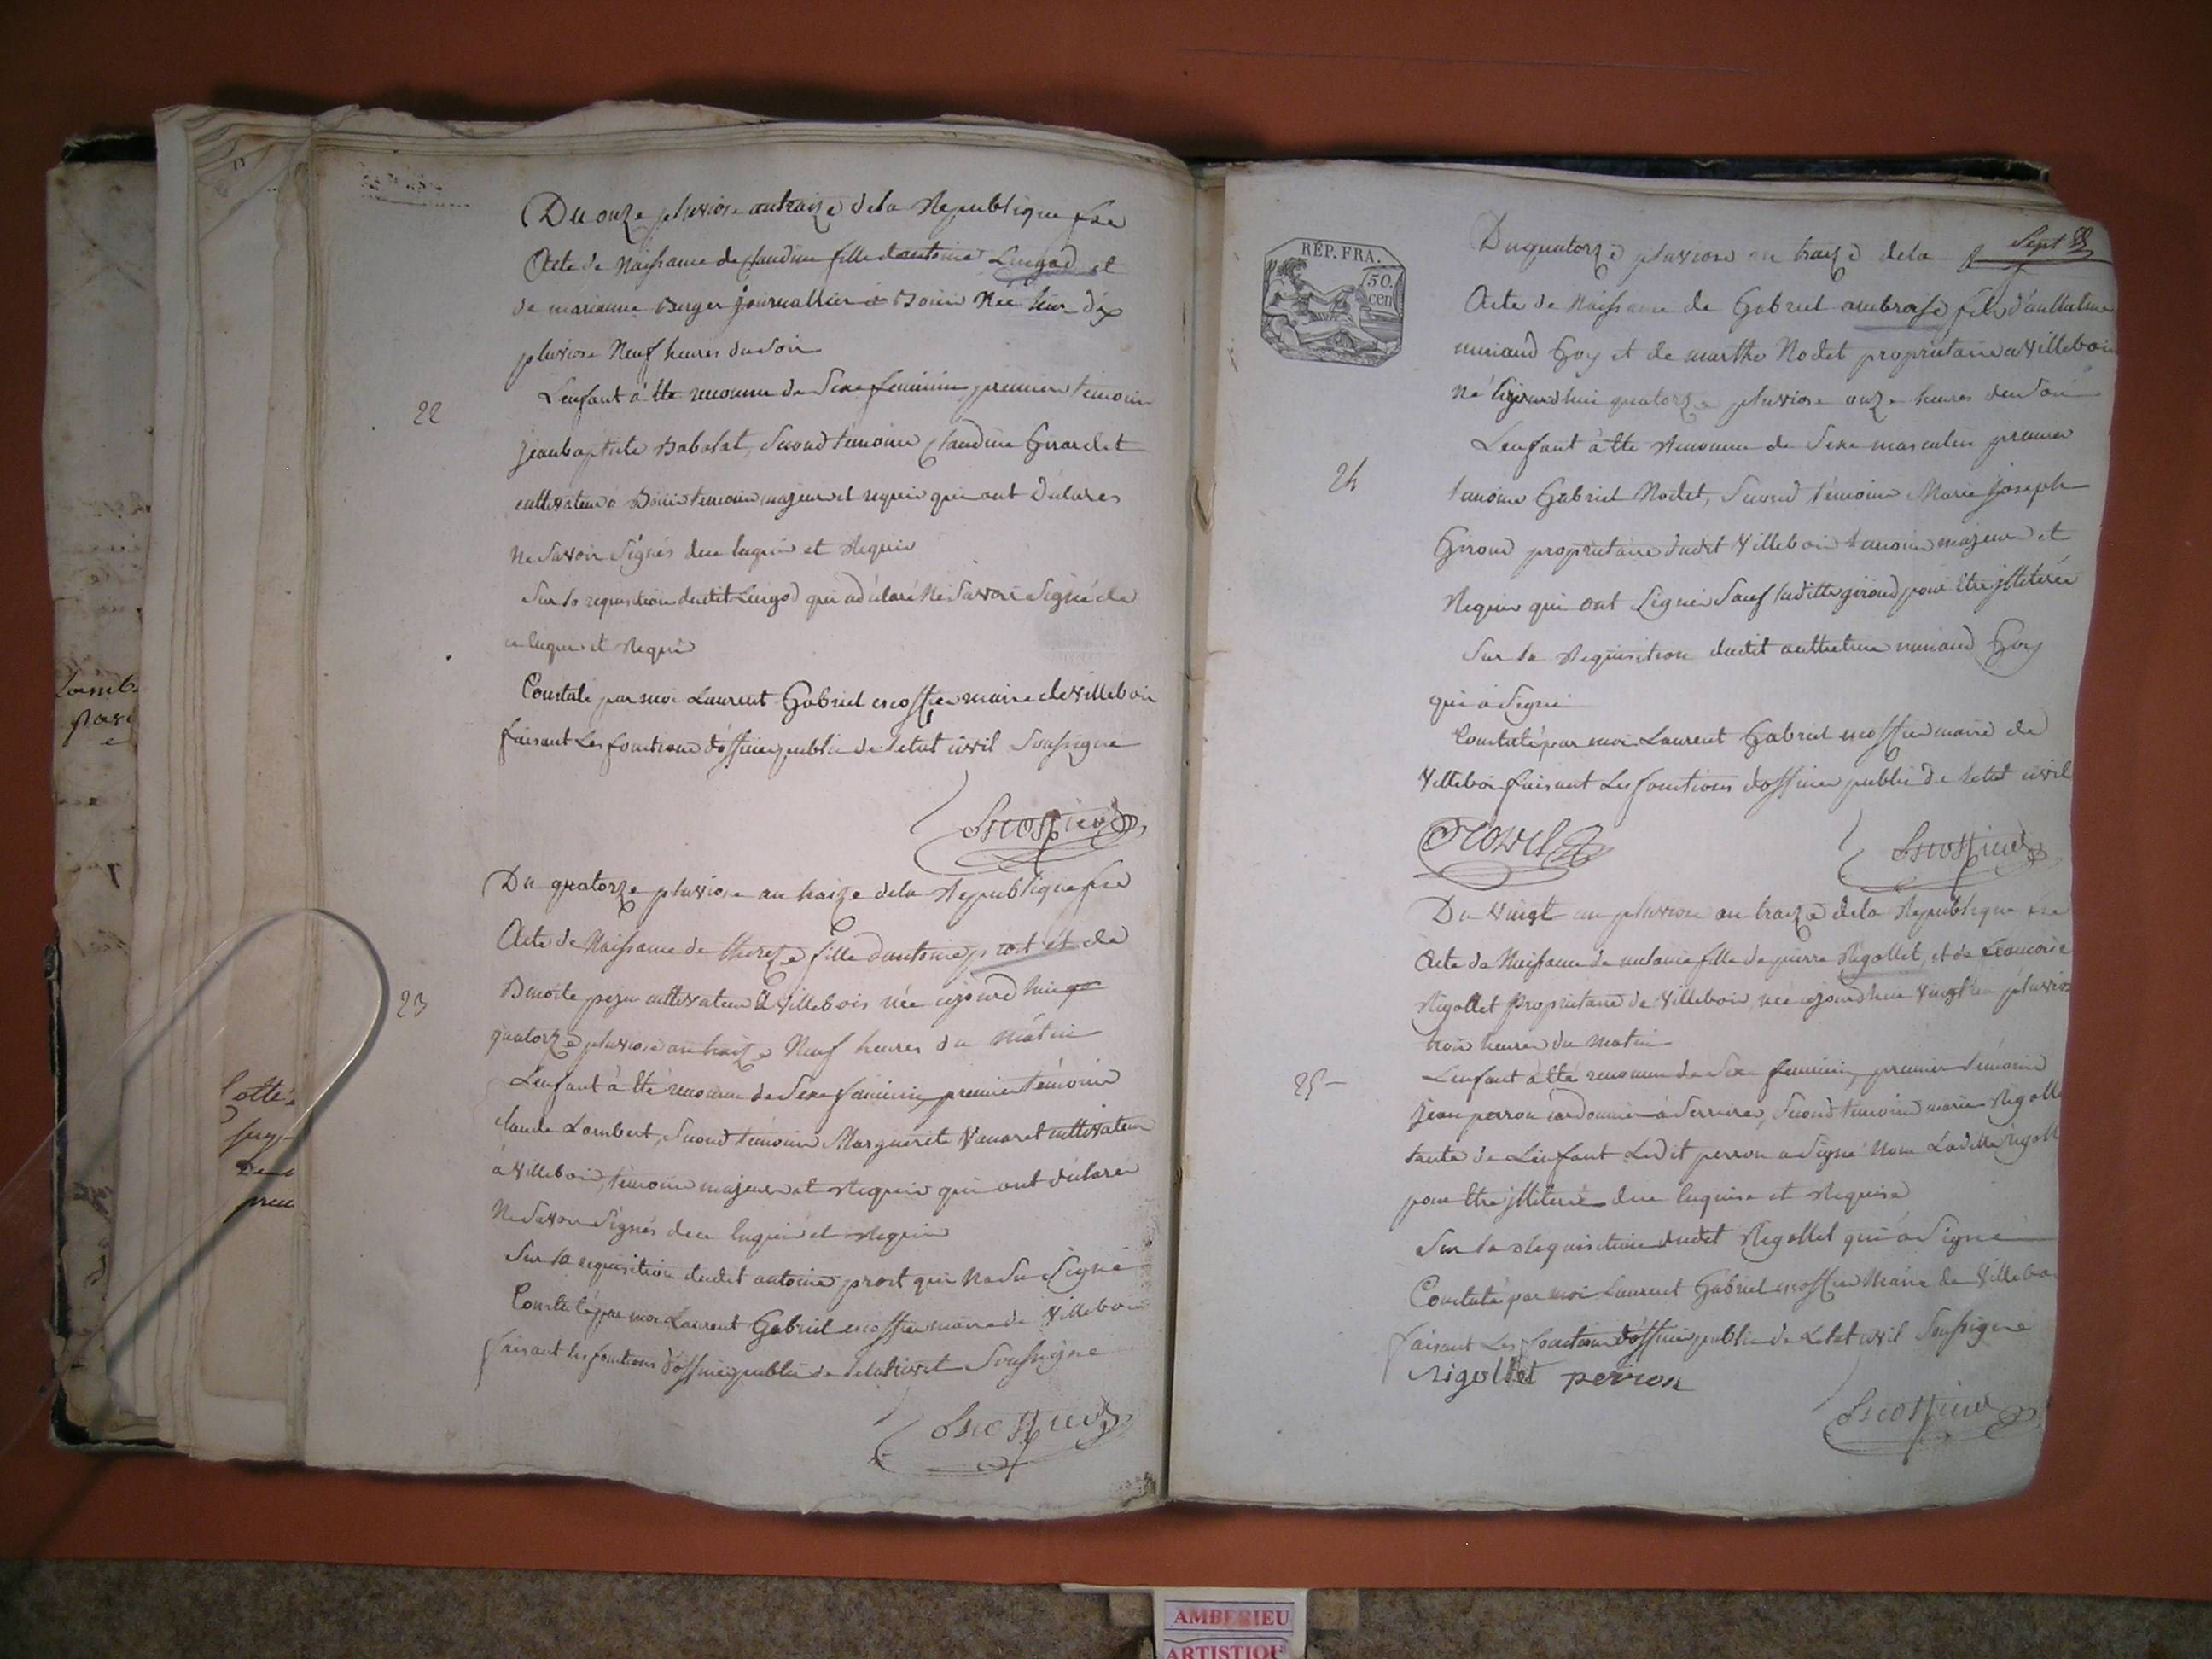 Du onze pluviose an treize de la Republique fse
Acte de Naissance de claudine fille d'antoine Lingod et
de marianne Berger journallier à Bouis Née hier dix
pluviose Neuf heures du Soir
22
L'enfant à été reconnu de Sexe feminin, premier temoin
jean baptiste Babolat, Second temoin claudine Girardet
cultivateur à Bouis temoins majeurs et requis qui ont déclarés
Ne Savoir Signés de ce enquis et Requis
Sur la requisition dudit Lingod qui a déclaré Ne Savoir Signé de
ce enquis et Requis
Constaté par moi Laurent Gabriel escoffier maire de Villebois
faisant Les fonctions d'officier public de l'etat civil Soussigné
Escoffier
Du quatorze pluviose an treize de la Republique fse
Acte de Naissance de therese fille d'antoine prost et de
23
Benoite peju cultivateur à Villebois née aujourd'hui
quatorze pluviose an treize Neuf heures du Matin
L'enfant à été reconnu de Sexe feminin, premier témoin
claude Lambert, Second témoin Marguerite Vanaret cultivateur
à Villebois, témoins majeurs et Requis qui ont déclarés
Ne Savoir Signés de ce enquis et Requis
Sur la requisition dudit antoine prost qui Na Su Signé
Constaté par moi Laurent Gabriel escoffier maire de Villebois
faisant les fonctions d'officier public de l'etat civil Soussigné
Escoffier
RÉP. FRA.
50.
cen
Sept
Du quatorze pluviose an treize de la R
Acte de Naissance de Gabriel ambroise fils d'anthelme
muriaud Goy et de marthe Nodet proprietaire a Villebois
Né aujourd'hui quatorze pluviose onze heures du Soir
L'enfant à été Reconnu de Sexe masculin premier
24
temoin Gabriel Nodet, Second témoin Marie Joseph
Giroud proprietaire dudit Villebois temoins majeurs et
Requis qui ont Signés Sauf laditte giroud pour être illiterée
Sur la Requisition dudit anthelme muriaud Goy
qui à Signé
Constaté par moi Laurent Gabriel escoffier maire de
Villebois faisant Les fonctions d'officier public de l'etat civil
Escoffier
Du Vingt un pluviose an treize de la Republique fse
Acte de Naissance de melanie fille de pierre Rigollet, et de francoise
Rigollet Proprietaire de Villebois, née aujourd'hui Vingt un pluviose
trois heures du Matin
25
L'enfant à été reconnu de Sexe feminin, premier témoin
jean perron cordonnier à Serrieres, Second temoin marie Rigolle
tante de L'enfant Ledit perron a Signé Non Laditte rigoll
pour être illiterée de ce enquise et Requise
Sur la Requisition dudit Rigollet qui à Signé
Constaté par moi Laurent Gabriel escoffier Maire de Villebo
faisant Les fonctions d'officier public de L'etat civil Soussigné
rigollet perron
Escoffier
AMBERIEU
ARTISTIQU